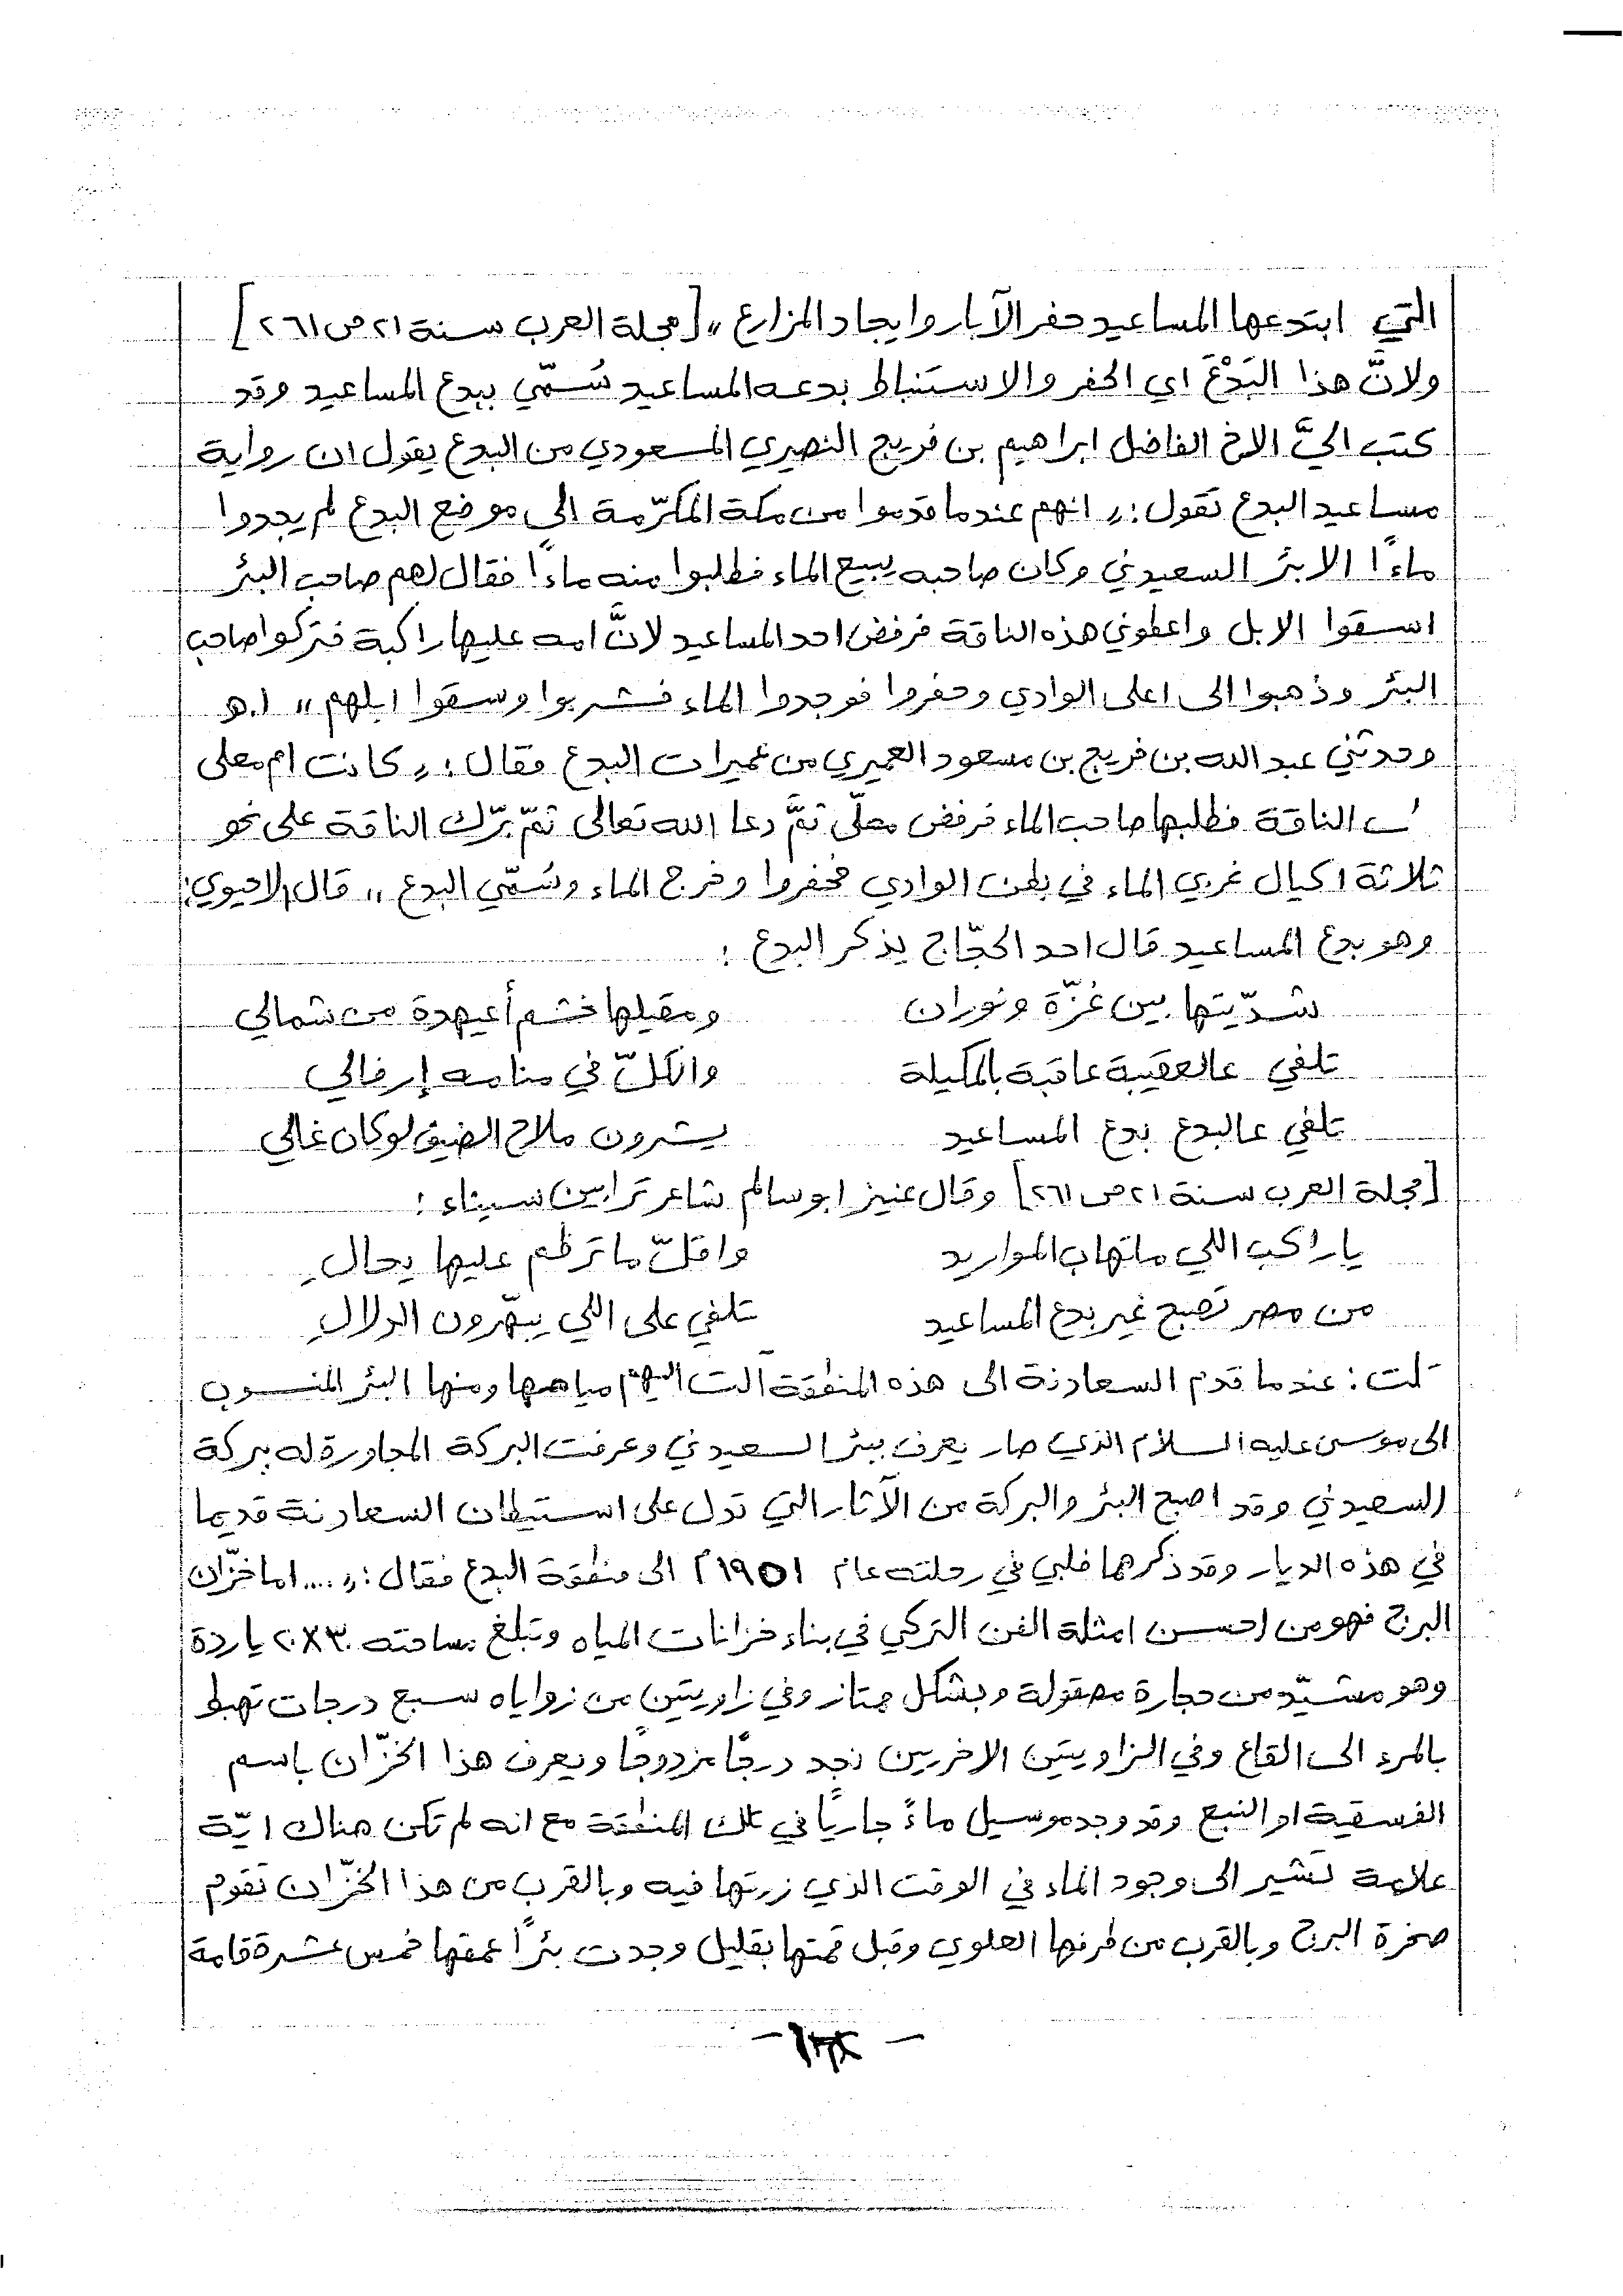 التي ابتدعها المساعيد حفر الآبار وايجاد المزارع » [مجلة العرب سنة ٢١ ص ٢٦١]
ولانَّ هذا البَدْعَ اي الحفر والاستنباط بدعه المساعيد سُمّي ببدع المساعيد وقد
كتب اليَّ الاخ الفاضل ابراهيم بن فريج النصيري المسعودي من البدع يقول ان رواية
مساعيد البدع تقول : « انهم عندما قدموا من مكة المكرّمة الى موضع البدع لم يجدوا
ماءًا الا بئر السعيدني وكان صاحبه يبيع الماء فطلبوا منه ماءًا فقال لهم صاحب البئر
اسقوا الابل واعطوني هذه الناقة فرفض احد المساعيد لانَّ امه عليها راكبة فتركوا صاحب
البئر وذهبوا الى اعلى الوادي وحفروا فوجدوا الماء فشربوا وسقوا ابلهم » ا.هـ
وحدثني عبد الله بن فريج بن مسعود العميري من عميرات البدع فقال : « كانت ام معلى
الناقة فطلبها صاحب الماء فرفض معلّى ثمَّ دعا الله تعالى ثمّ برّك الناقة على نحو
ثلاثة اكيال غربي الماء في بطن الوادي فحفروا وخرج الماء وسُمّي البدع » قال الاحيوي :
وهو بدع المساعيد قال احد الحجّاج يذكر البدع :
شدّيتها بين غزّة ونوران ومقيلها خشم أعيهدة من شمالي
تلفي عالعقيبة عاقبة بالمكيلة والكلّ في منامه إرفالي
تلفي عالبدع بدع المساعيد يشرون ملاح الضيف لو كان غالي
[مجلة العرب سنة ٢١ ص ٢٦١] وقال عنيز ابو سالم شاعر ترابين سيناء :
يا راكب اللي ماتهاب المواريد واقلّ ما ترظم عليها يحالِ
من مصر تصبح غير بدع المساعيد تلفي على اللي يبهّرون الدلالِ
قلت : عندما قدم السعادنة الى هذه المنطقة آلت اليهم مياهها ومنها البئر المنسوب
الى موسى عليه السلام الذي صار يعرف ببئر السعيدني وعرفت البركة المجاورة له بركة
السعيدني وقد اصبح البئر والبركة من الآثار التي تدل على استيطان السعادنة قديما
في هذه الديار وقد ذكرها فلبي في رحلته عام ١٩٥١م الى منطقة البدع فقال : « .... اما خزّان
البرج فهو من احسن امثلة الفن التركي في بناء خزانات المياه وتبلغ مساحته ٣٠x٢٠ ياردة
وهو مشيّد من حجارة مصقولة وبشكل ممتاز وفي زاويتين من زواياه سبع درجات تهبط
بالمرء الى القاع وفي الزاويتين الاخريين نجد درجًا مزدوجًا ويعرف هذا الخزّان باسم
الفسقية او النبع وقد وجد موسيل ماءً جاريًا في تلك المنطقة مع انه لم تكن هناك ايّة
علامة تشير الى وجود الماء في الوقت الذي زرتها فيه وبالقرب من هذا الخزّان تقوم
صخرة البرج وبالقرب من طرفها العلوي وقبل قمتها بقليل وجدت بئرًا عمقها خمس عشرة قامة